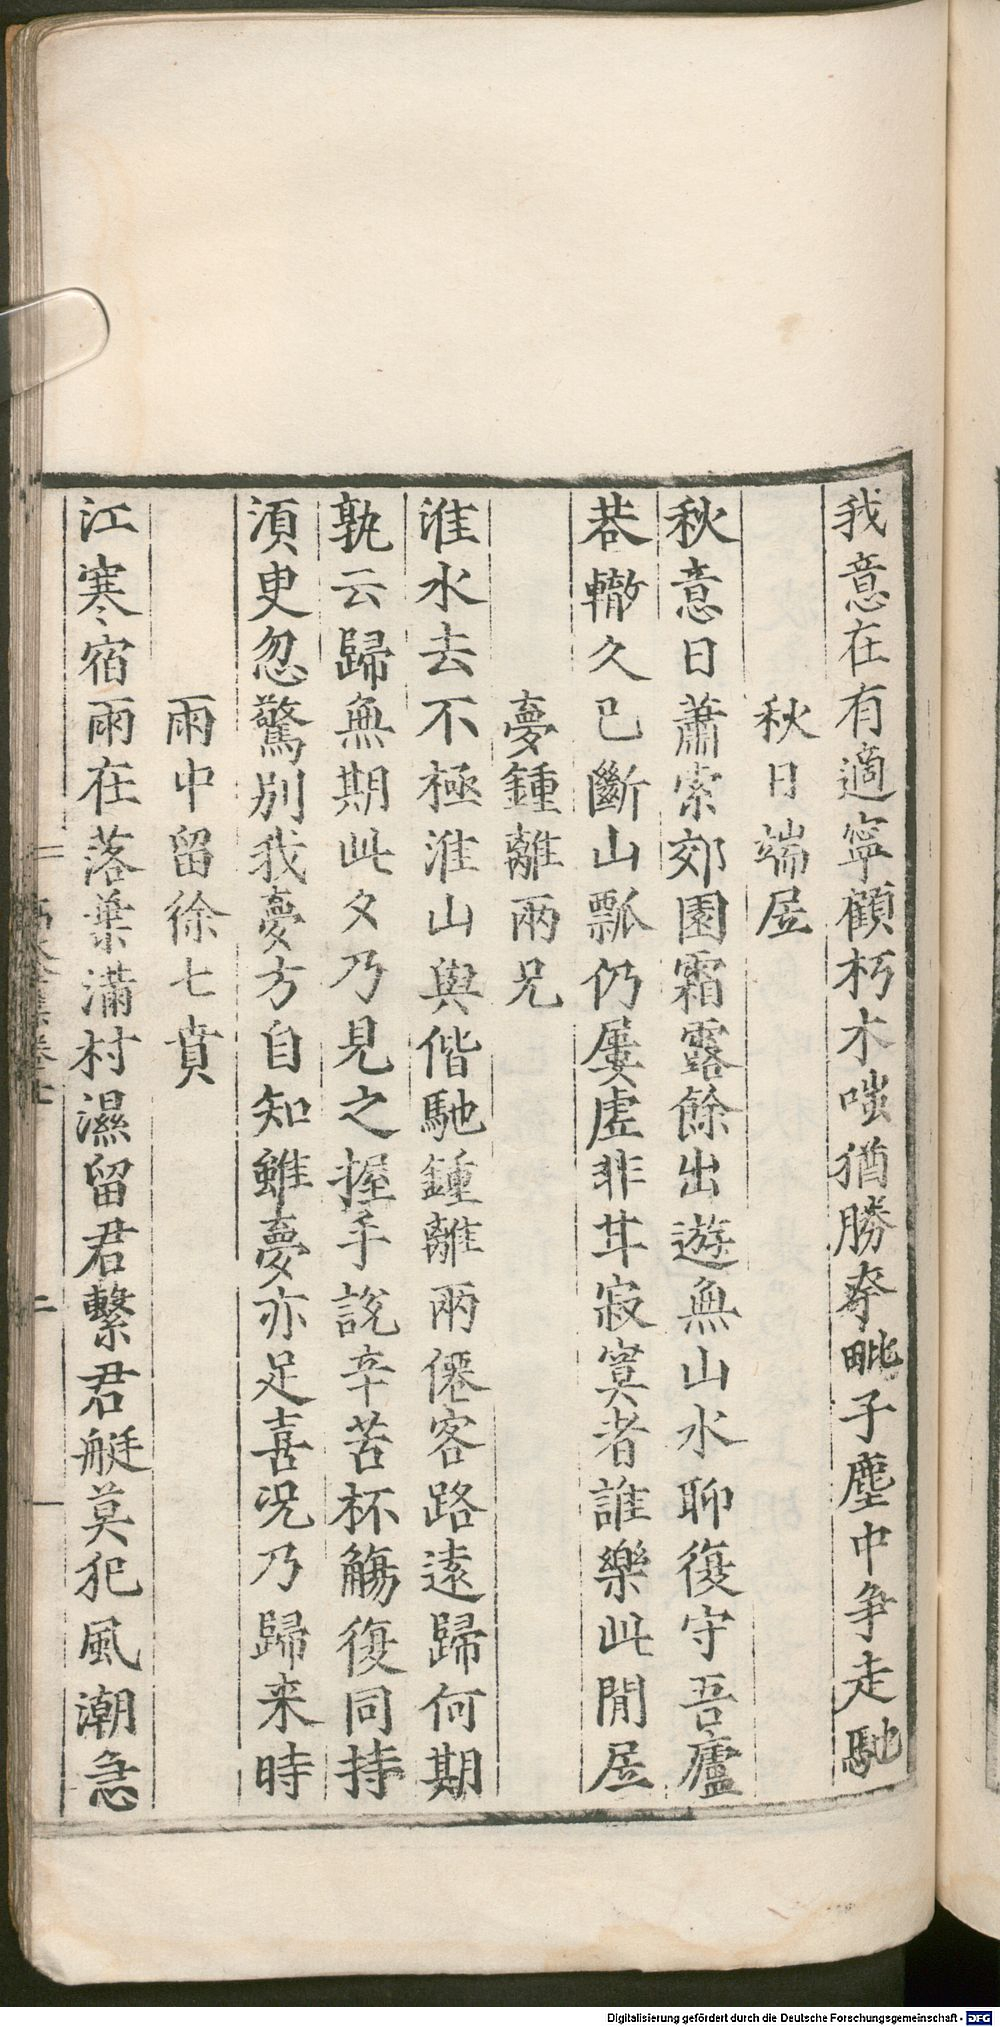 我意在有適寧顧朽木嗤猶勝夸毗子塵中争走馳
秋日端居
秋意日蕭索郊園霜露餘出遊無山水聊復守吾廬
巷轍久已斷山瓢仍屢虛非甘寂寞者誰樂此閒居
夢鍾離兩兄
淮水去不極淮山與偕馳鍾離兩僊客路遠歸何期
孰云歸無期此夕乃見之握手說辛苦杯觴復同持
須臾忽驚别我夢方自知雖夢亦足喜况乃歸来時
雨中留徐七賁
江寒宿雨在落葉滿村濕留君繫君艇莫犯風潮急
二
Digitalisierung gefördert durch die Deutsche Forschungsgemeinschaft - DFG